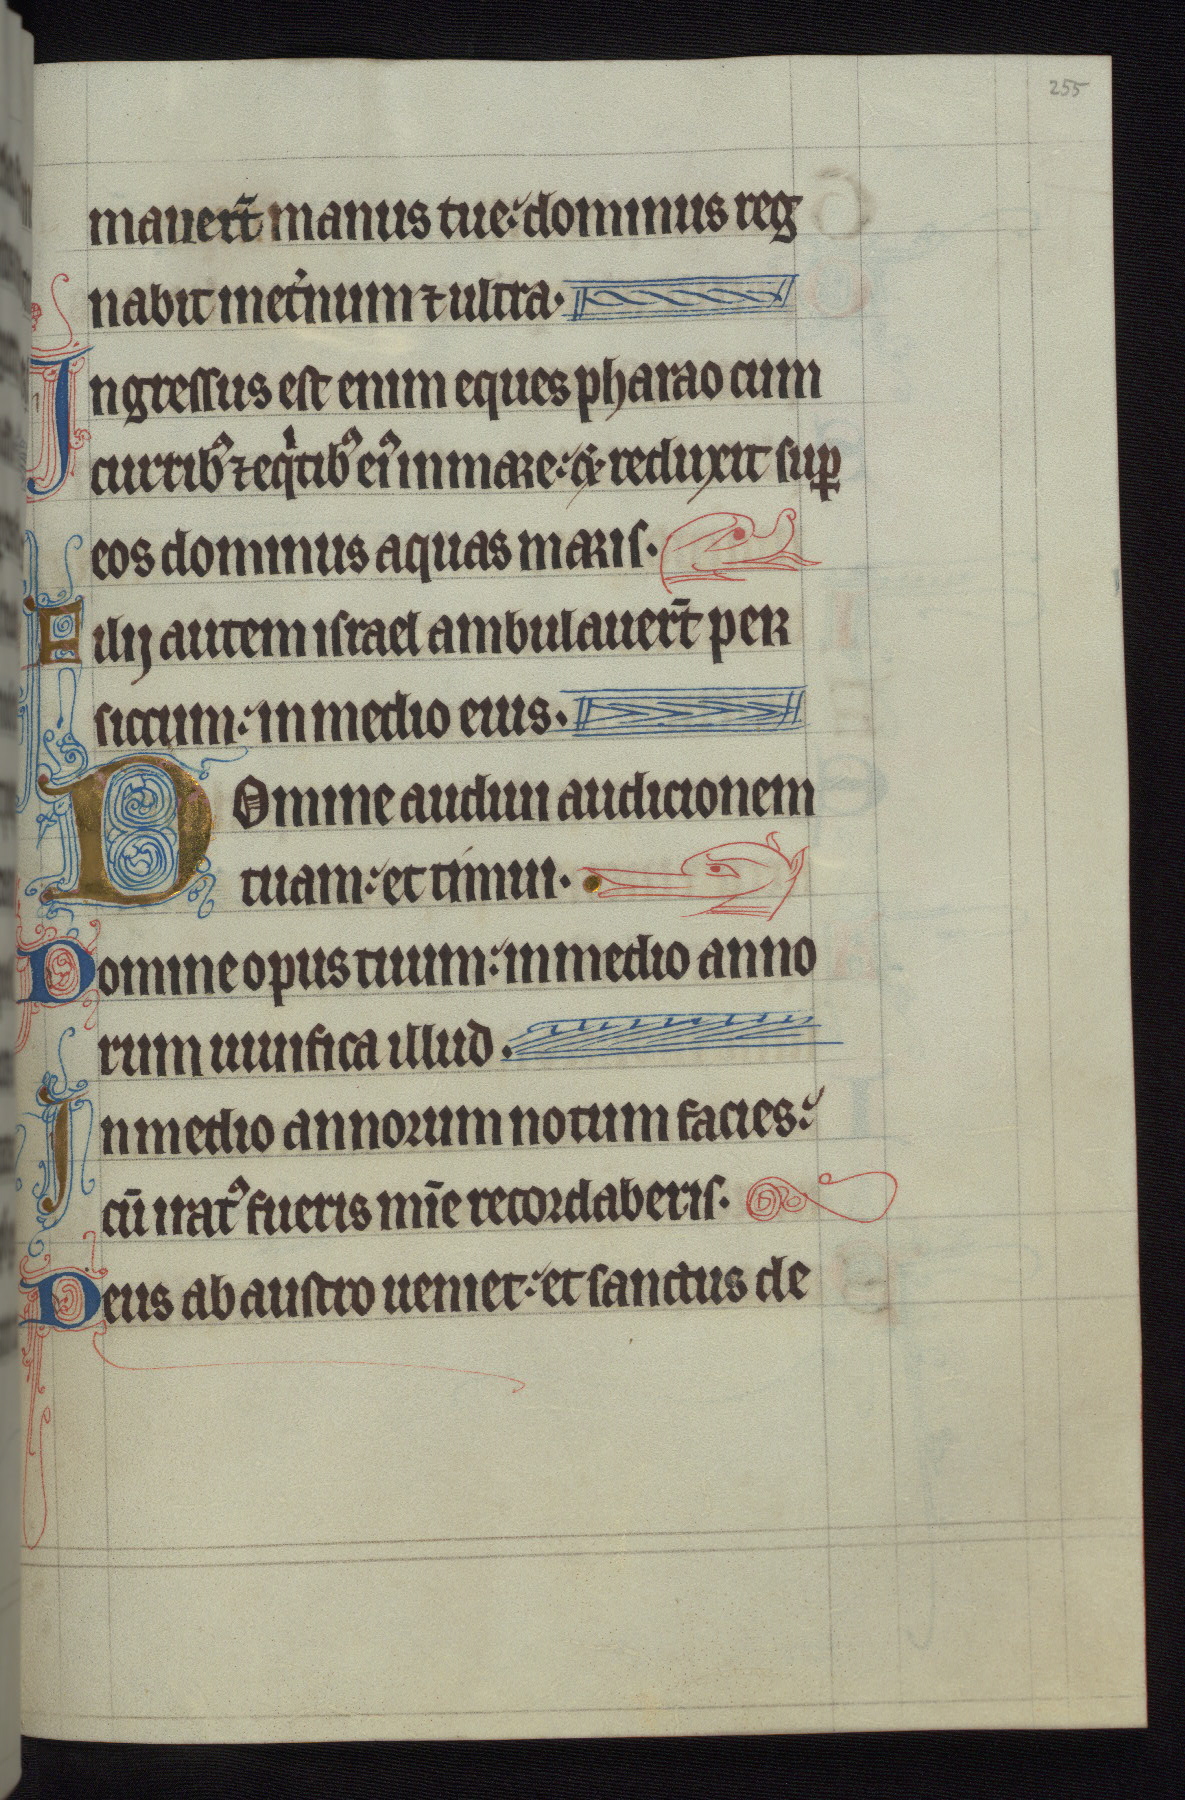 255
mauert̄ manus tue: dominus reg
nabit inet̓num ⁊ ultra.
Ingressus est enim eques pharao cum
curribꝰ ⁊ eqͥtibꝰ eiꝰ in mare: & reduxit suꝑ
eos dominus aquas maris.
Filij autem israel ambulauert̄ per
siccum: in medio eius.
Domine audiui audicionem
tuam: et timui.
Domine opus tuum: in medio anno
rum uiuifica illud.
In medio annorum notum facies:
cū iratꝰ fueris mīe recordaberis.
Deus ab austro ueniet: et sanctus de